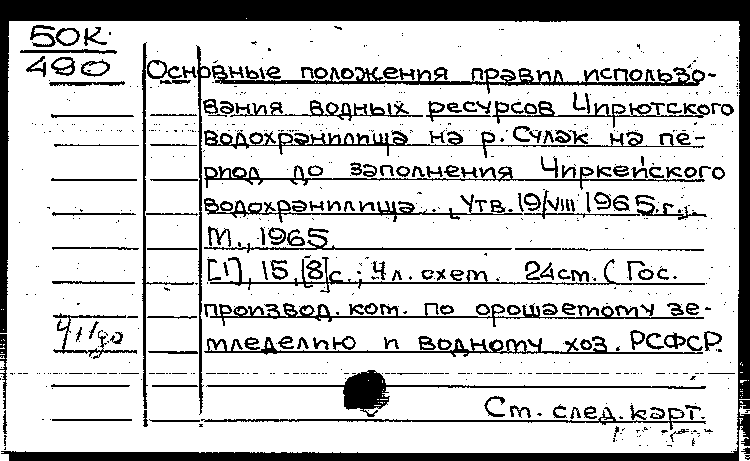 50К
490
Основные положения правил использо-
вания водных ресурсов Чирютского
водохранилища на р. Сулак на пе-
риод до заполнения Чиркейского
водохранилища.. [Утв. 19/VIII 1965.г.].
М., 1965.
[1], 15, [8]с.; 4 л. схем. 24см. (Гос.
производ. ком. по орошаемому зе-
мледелию и водному хоз. РСФСР.
См. след. карт.